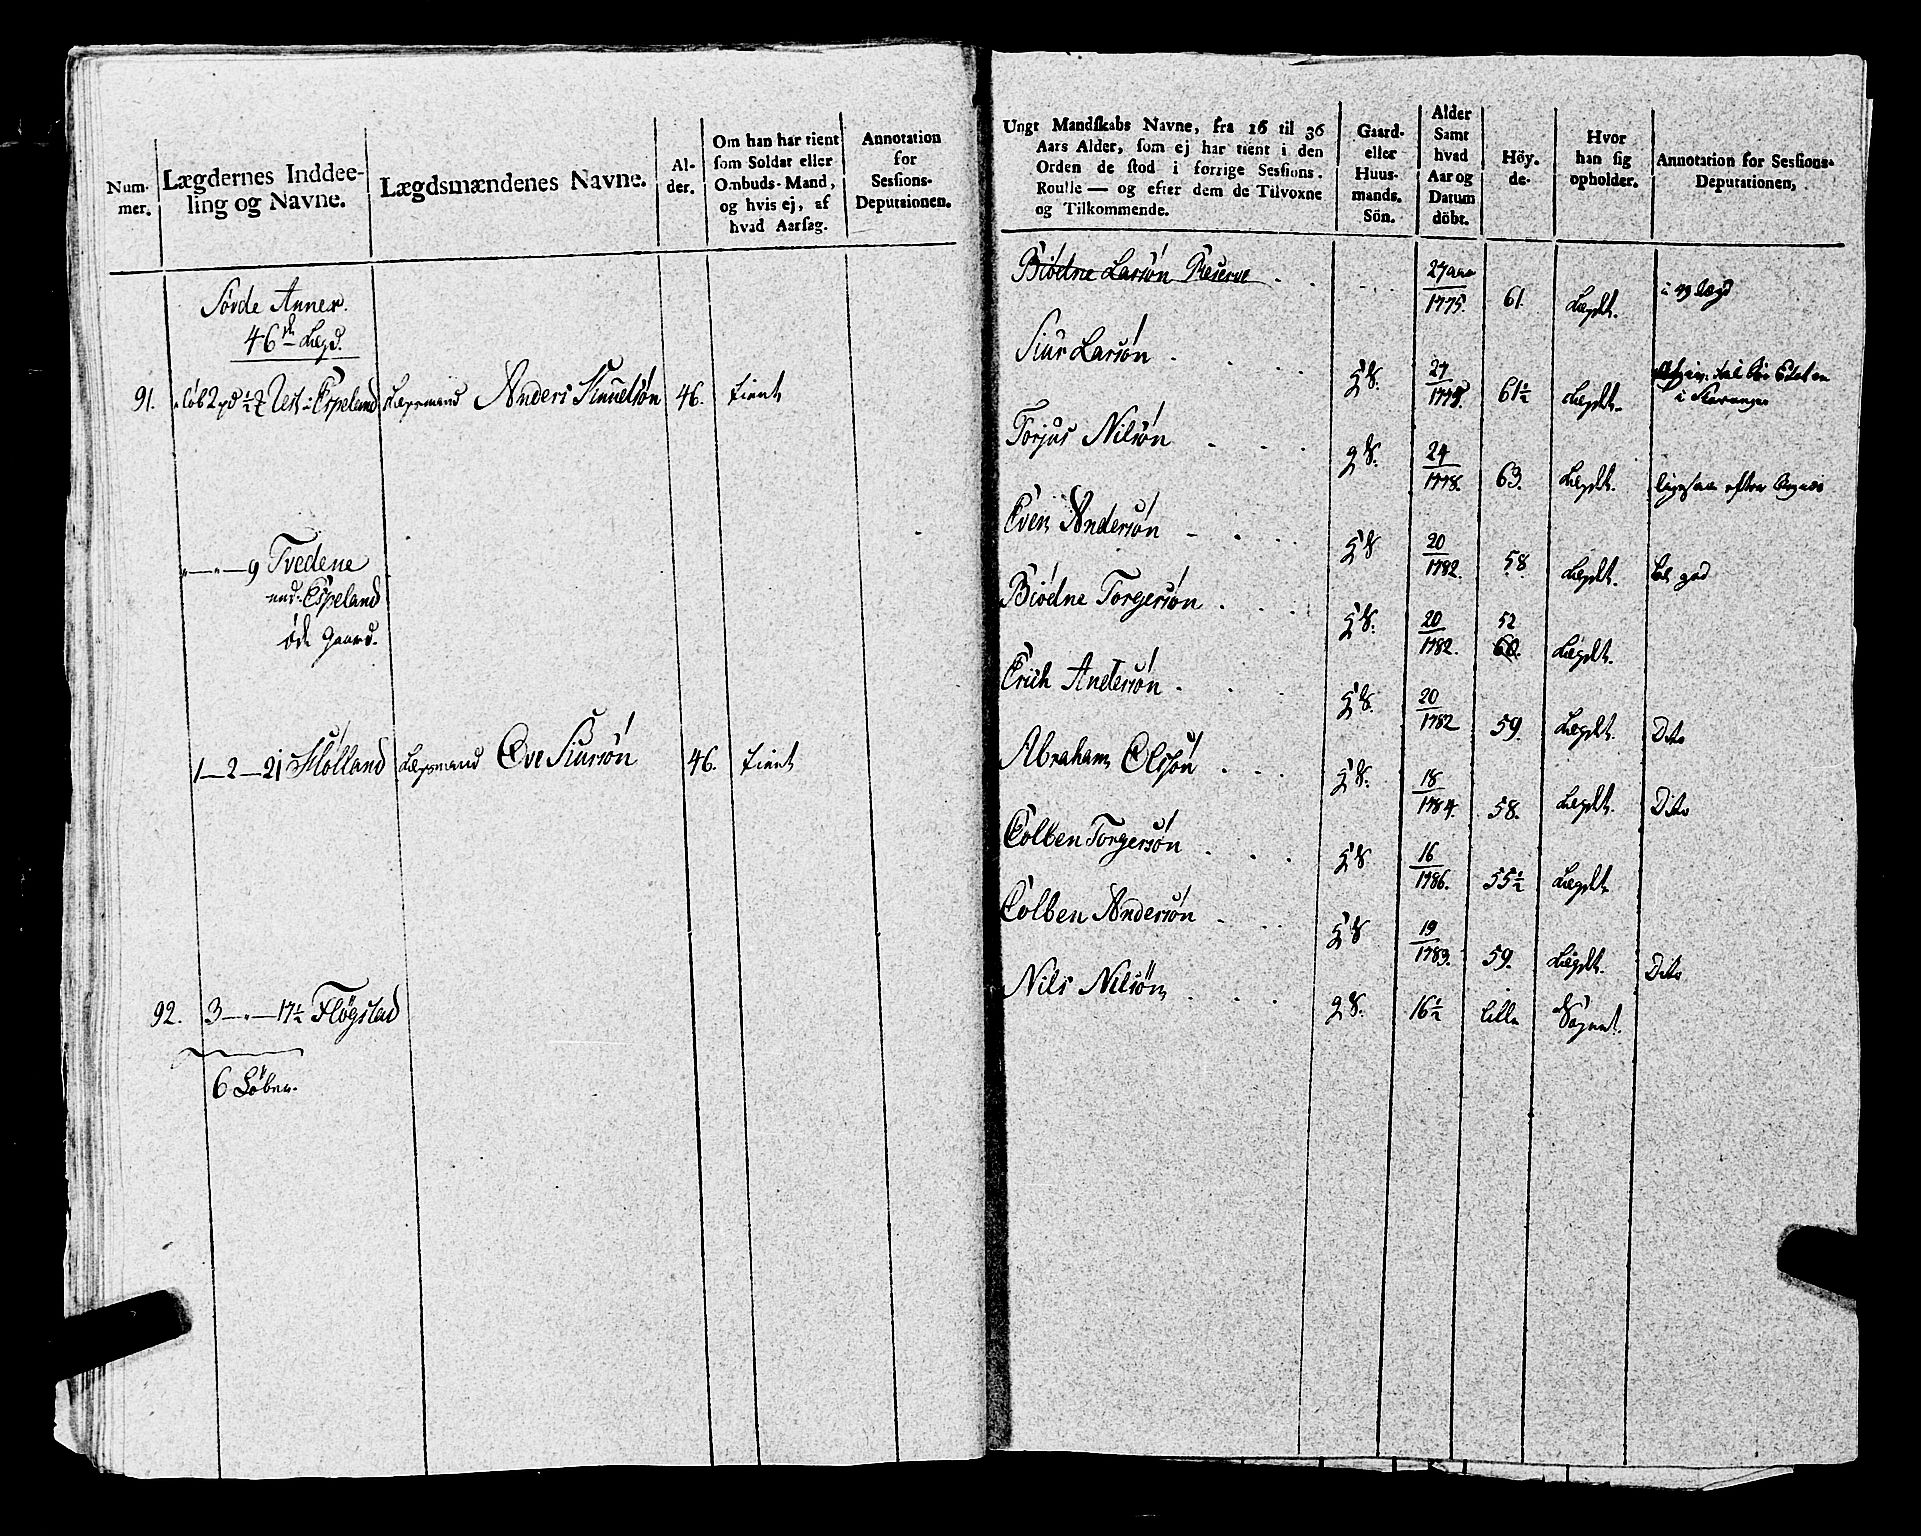 Num-
mer.
Lægdernes Inddee-
ling og Navne.
Lægdsmændenes Navne.
Al-
der.
Om han har tient
som Soldat eller
Ombuds-Mand,
og hvis ej, af
hvad Aarsag.
Annotation
for
Sessions-
Deputationen.
Sørde Annex.
46de Lægd.
91. 2 pd ½ Espeland Lægsmand Anders 46. tient
9 Tvedene
und. Espeland
øde Gaard.
1—2—21 Hølland Lægsmand Ove Siursøn 46. tient
92. 3—"—17½ Fløgstad
6 Løber.
Ungt Mandskabs Navne, fra 16 til 36
Aars Alder, som ej har tient i den
Orden de stod i forrige Sessions-
Roulle — og efter dem de Tilvoxne
og Tilkommende.
Gaard-
eller
Huus-
mands.
Sön.
Alder
Samt
hvad
Aar og
Datum
döbt.
Höy-
de.
Hvor
han sig
opholder.
Annotation for Sessions-
Deputationen.
Biødne Larsøn Reserve 27 aar 1775. 61. Lægdt. i 49 Lægd
Siur Larsøn G.S. 24 1778. 61½ Lægdt. i Stavanger
Torjus Nilsøn 24 1778. 63. Lægdt.
Even Andersøn G.S. 20 1782. 58. Lægdt.
Biødne Torgersøn G.S. 20 1782. 52 60. Lægdt.
Erich Andersøn G.S. 20 1782 59. Lægdt. Dito
Abraham Olsøn G.S. 18 1784. 58. Lægdt. Dito
Colben Torgersøn G.S. 16 1786. 55½ Lægdt.
Colben Andersøn G.S. 19 1783. 59. Lægdt. Dito
Nils Nilsøn 16½ lille Sognet.